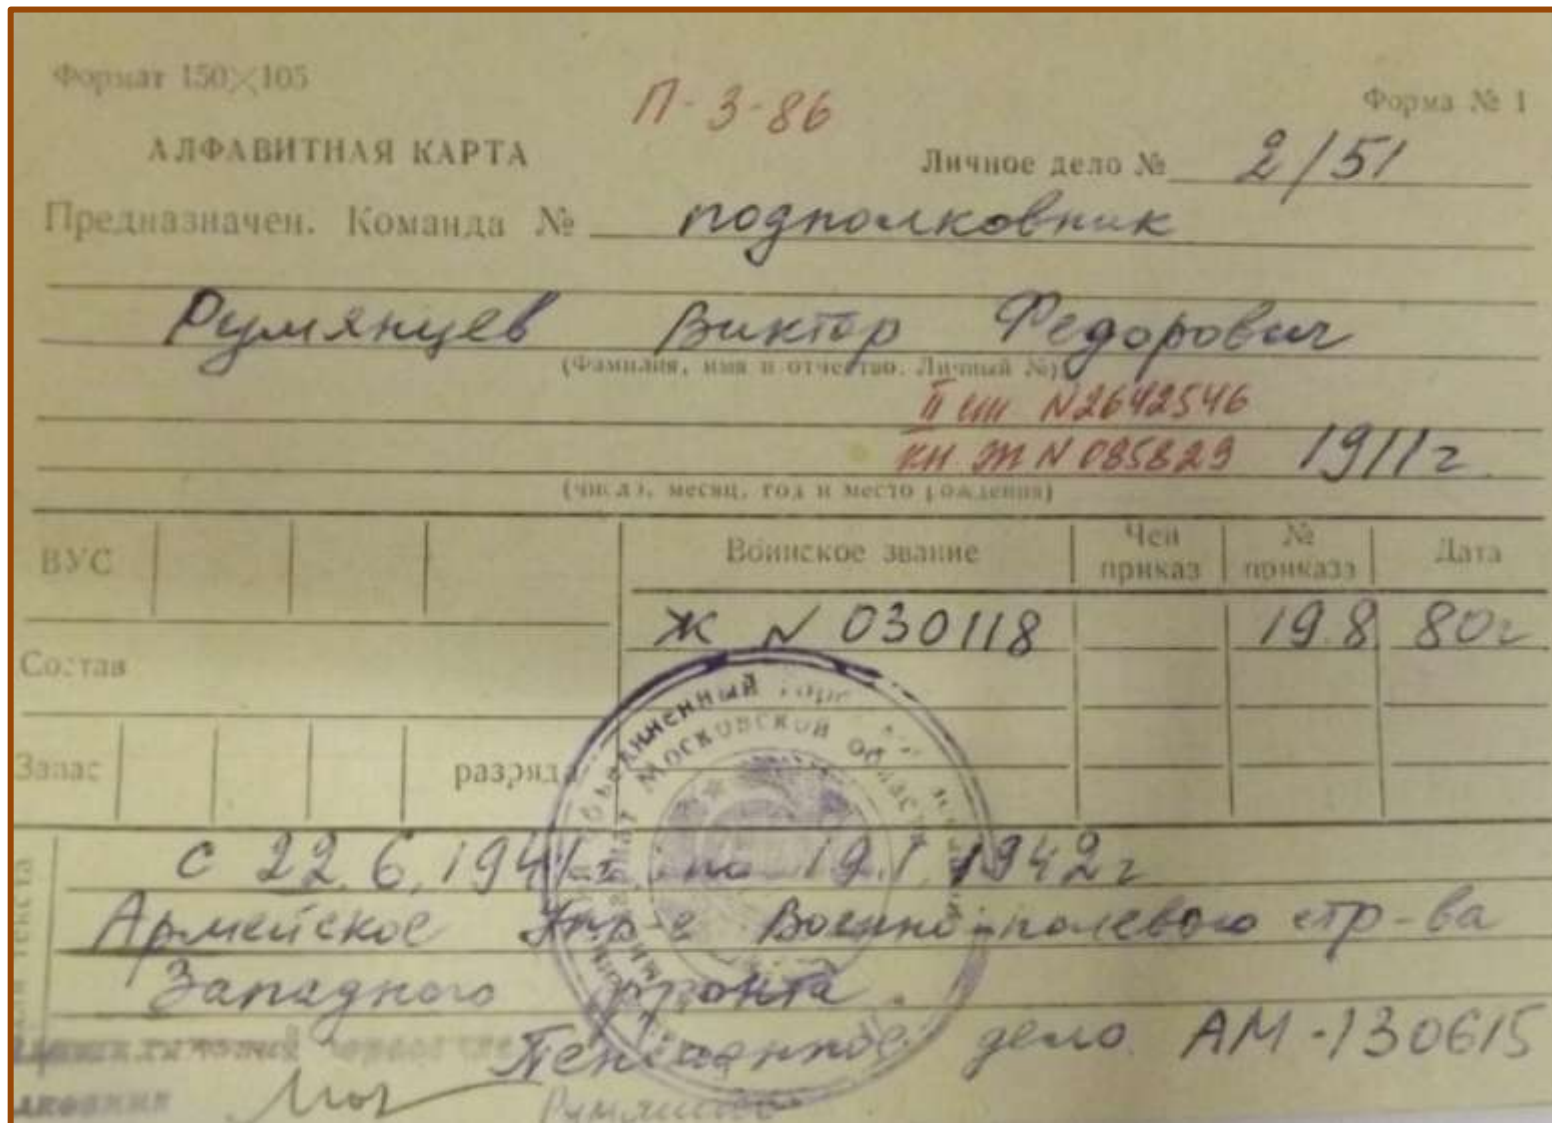 Формат 150×105
П-3-86
Форма № 1
АЛФАВИТНАЯ КАРТА
Личное дело № 2/51
Предназначен. Команда № подполковник
Румянцев Виктор Федорович
(Фамилия, имя и отчество. Личный №)
II N2642546
КН. Ж N 085829 1911г.
(число, месяц, год и место рождения)
ВУС
Воинское звание
Чей приказ
№ приказа
Дата
Ж N 030118 19.8 80г
Состав
Запас
разряд
Объединенный
Московской области
с 22.6.1941г. по 19.1.1942г
Армейское Упр-е Военно-полевого стр-ва
Западного фронта.
Пенсионное дело АМ-130615
Румянцев